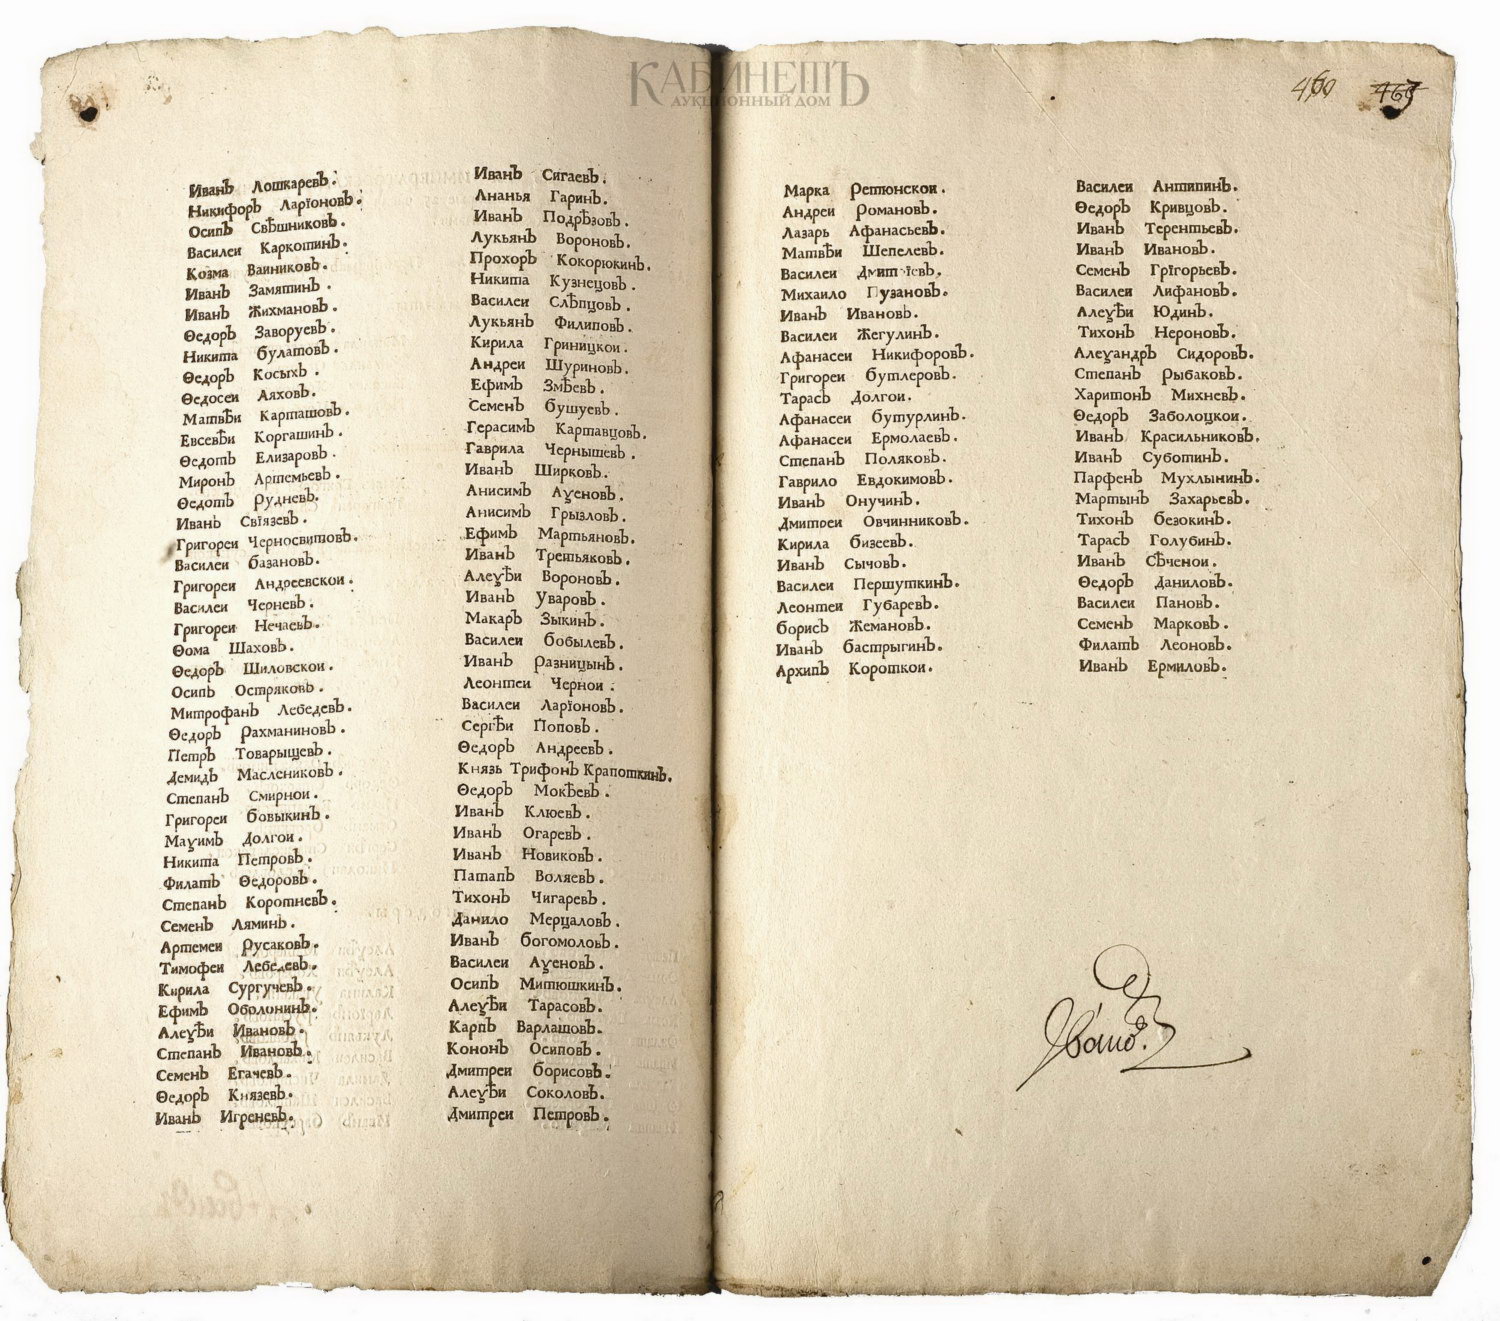 КАБИНЕТЪ
АУКЦИОННЫЙ ДОМ
460 469
Иванъ Лошкаревъ.
Никифоръ Ларїоновъ.
Осипъ Свѣшниковъ.
Василеи Каркотинъ.
Козма Ваиниковъ.
Иванъ Замятинъ.
Иванъ Жихмановъ.
Ѳедоръ Заворуевъ.
Никита булатовъ.
Ѳедоръ Косыхъ.
Ѳедосеи Аяховъ.
Матвѣи Карташовъ.
Евсевѣи Коргашинъ.
Ѳедотъ Елизаровъ.
Миронъ Артемьевъ.
Ѳедотъ рудневъ.
Иванъ Свїязевъ.
Григореи Черносвитовъ.
Василеи базановъ.
Григореи Андреевскои.
Василеи Черневъ.
Григореи Нечаевъ.
Ѳома Шаховъ.
Ѳедоръ Шиловскои.
Осипъ Остряковъ.
Митрофанъ Лебедевъ.
Ѳедоръ рахманиновъ.
Петръ Товарыщевъ.
Демидъ Маслениковъ.
Степанъ Смирнои.
Григореи бовыкинъ.
Маѯимъ Долгои.
Никита Петровъ.
Филатъ Ѳедоровъ.
Степанъ Коротневъ.
Семенъ Ляминъ.
Артемеи русаковъ.
Тимофеи Лебедевъ.
Кирила Сургучевъ.
Ефимъ Оболонинъ.
Алеѯѣи Ивановъ.
Степанъ Ивановъ.
Семенъ Егачевъ.
Ѳедоръ Князевъ.
Иванъ Игреневъ.
Иванъ Сигаевъ.
Ананья Гаринъ.
Иванъ Подрѣзовъ.
Лукьянъ Вороновъ.
Прохоръ Кокорюкинъ.
Никита Кузнецовъ.
Василеи Слѣпцовъ.
Лукьянъ Филиповъ.
Кирила Гриницкои.
Андреи Шуриновъ.
Ефимъ Змѣевъ.
Семенъ бушуевъ.
Герасимъ Картавцовъ.
Гаврила Чернышевъ.
Иванъ Ширковъ.
Анисимъ Аѯеновъ.
Анисимъ Грызловъ.
Ефимъ Мартьяновъ.
Иванъ Третьяковъ.
Алеѯѣи Вороновъ.
Иванъ Уваровъ.
Макаръ Зыкинъ.
Василеи бобылевъ.
Иванъ разницынъ.
Леонтеи Чернои.
Василеи Ларїоновъ.
Сергѣи Поповъ.
Ѳедоръ Андреевъ.
Князь Трифонъ Крапоткинъ.
Ѳедоръ Мокѣевъ.
Иванъ Клюевъ.
Иванъ Огаревъ.
Иванъ Новиковъ.
Патапъ Воляевъ.
Тихонъ Чигаревъ.
Данило Мерцаловъ.
Иванъ богомоловъ.
Василеи Аѯеновъ.
Осипъ Митюшкинъ.
Алеѯѣи Тарасовъ.
Карпъ Варлатовъ.
Кононъ Осиповъ.
Дмитреи борисовъ.
Алеѯѣи Соколовъ.
Дмитреи Петровъ.
Марка ретюнскои.
Андреи романовъ.
Лазарь Афанасьевъ.
Матвѣи Шепелевъ.
Василеи
Михаило Пузановъ.
Иванъ Ивановъ.
Василеи Жегулинъ.
Афанасеи Никифоровъ.
Григореи бутлеровъ.
Тарасъ Долгои.
Афанасеи бутурлинъ.
Афанасеи Ермолаевъ.
Степанъ Поляковъ.
Гаврило Евдокимовъ.
Иванъ Онучинъ.
Дмитреи Овчинниковъ.
Кирила бизеевъ.
Иванъ Сычовъ.
Василеи Першуткинъ.
Леонтеи Губаревъ.
борисъ Жемановъ.
Иванъ бастрыгинъ.
Архипъ Короткои.
Василеи Антипинъ.
Ѳедоръ Кривцовъ.
Иванъ Терентьевъ.
Иванъ Ивановъ.
Семенъ Грїгорьевъ.
Василеи Лифановъ.
Алеѯѣи Юдинъ.
Тихонъ Нероновъ.
Алеѯандръ Сидоровъ.
Степанъ рыбаковъ.
Харитонъ Михневъ.
Ѳедоръ Заболоцкои.
Иванъ Красильниковъ.
Иванъ Суботинъ.
Парфенъ Мухлынинъ.
Мартынъ Захарьевъ.
Тихонъ безокинъ.
Тарасъ Голубинъ.
Иванъ Сѣченои.
Ѳедоръ Даниловъ.
Василеи Пановъ.
Семенъ Марковъ.
Филатъ Леоновъ.
Иванъ Ермиловъ.